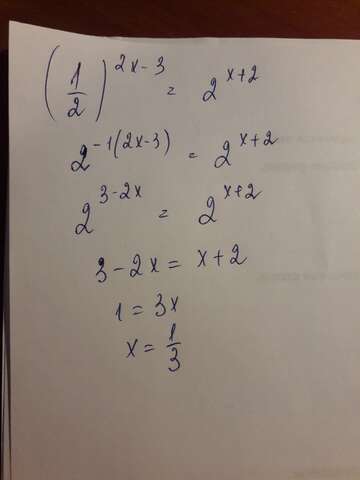 (1/2)^{2x-3} = 2^{x+2}
2^{-1(2x-3)} = 2^{x+2}
2^{3-2x} = 2^{x+2}
3-2x = x+2
1 = 3x
x = 1/3